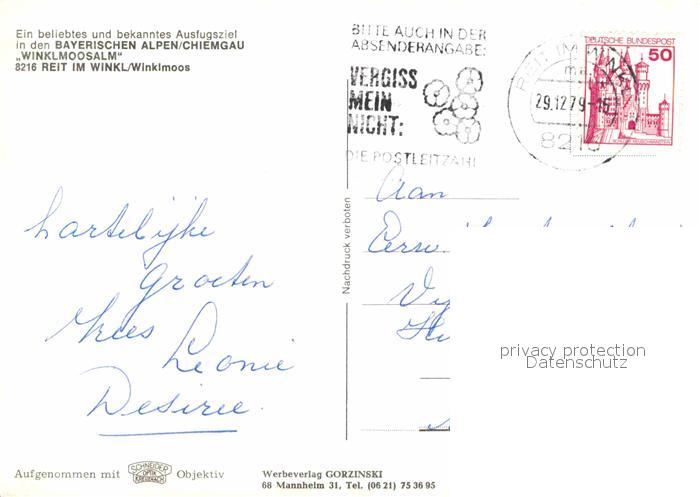 Ein beliebtes und bekanntes Ausfugsziel
in den BAYERISCHEN ALPEN/CHIEMGAU
„WINKLMOOSALM“
8216 REIT IM WINKL/Winklmoos
BITTE AUCH IN DER
ABSENDERANGABE:
VERGISS
MEIN
NICHT:
DIE POSTLEITZAHL
REIT IM WINKL
29.12.79-15
8216
DEUTSCHE BUNDESPOST
50
SCHLOSS NEUSCHWANSTEIN
hartelijke
groeten
Kees
Leonie
Desiree
Nachdruck verboten
Aan
privacy protection
Datenschutz
Aufgenommen mit SCHNEIDER OPTIK KREUZNACH Objektiv
Werbeverlag GORZINSKI
68 Mannheim 31, Tel. (06 21) 75 36 95